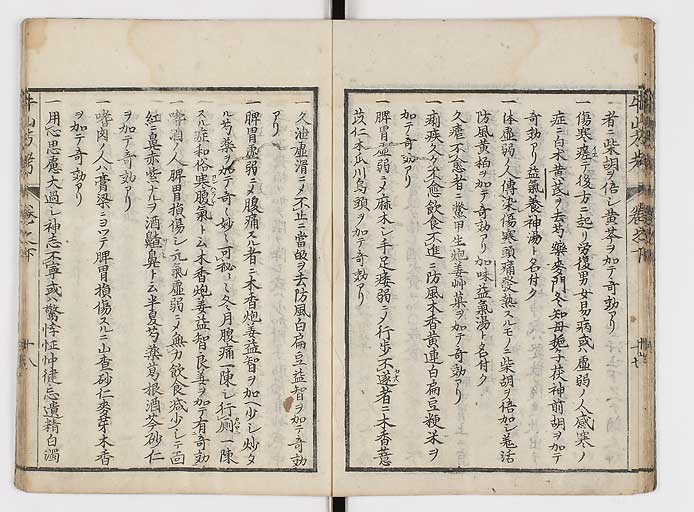 一者ニ柴胡ヲ倍シ黄芩ヲ加テ奇効アリ
一傷寒瘥テ後方ニ起リ労復男女易病或ハ虚弱ノ人感寒ノ
症ニ白木黄芪ヲ去芍藥麥門冬知母梔子茯神前胡ヲ加テ
奇効アリ益氣養神湯ト名付ク
一体虚弱ノ人傳染傷寒頭痛發熱スルモノニ柴胡ヲ倍加シ羗活
防風黄柏ヲ加テ奇効アリ加味益氣湯ト名付ク
一久瘧不愈者ニ鱉甲生炮姜草菓ヲ加テ奇効アリ
一痢疾久ク不愈飲食不進ニ防風木香黄連白扁豆粳米ヲ
加テ奇効アリ
一脾胃虚弱ニメ麻木シ手足痿弱ニメ行歩不遂者ニ木香薏
苡仁木瓜川烏頭ヲ加テ奇効アリ
一久泄虚滑ニメ不止ニ當皈ヲ去防風白扁豆益智ヲ加テ奇効
アリ
一脾胃虚弱ニメ腹痛スル者ニ木香炮姜益智ヲ加一少シ炒タ
ル芍藥ヲ加テ奇々妙々可秘
一冬月腹痛一陳シ行厠一陳
スル症和俗寒腹氣トム木香炮姜益智良姜ヲ加テ有奇効
一嗜酒ノ人脾胃損傷シ元氣虚弱ニメ無力飲食减少シテ面
紅ニ鼻赤紫ナルヲ酒皶鼻トム半夏芍藥葛根酒芩砂仁
ヲ加テ奇効アリ
一嗜肉ノ人ハ膏梁ニヨツテ脾胃損傷スルニ山査砂仁麥芽木香
ヲ加テ奇効アリ
一用心思慮大過シ神志不寧或ハ驚悸怔忡健忘遺精白濁
牛山方考
巻之下
十八